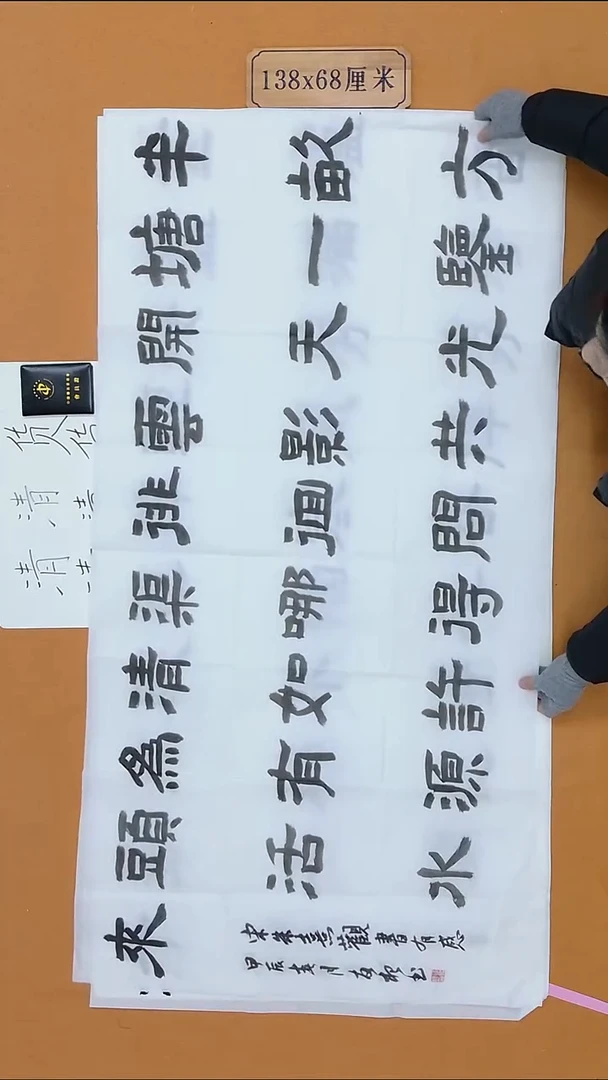 138x68厘米
半畝方
塘一鑒
開天光
雲影共
徘徊問
渠哪得
清如許
為有源
頭活水
來
宋朱熹觀書有感
甲辰
货
清
清